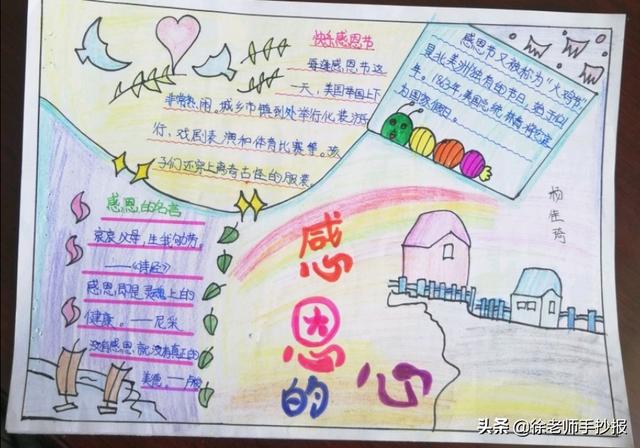 快乐感恩节
每逢感恩节这
一天，美国举国上下
非常热闹。城乡市镇到处举行化装游
行、戏剧表演和体育比赛等。孩
子们还穿上离奇古怪的服装。
感恩节又被称为“火鸡节”
是北美洲独有的节日，始于1621
年。1863年，美国总统林肯将它定
为国家假日。
感恩的名言
哀哀父母，生我劬劳。
——《诗经》
感恩即是灵魂上的
健康。——尼采
没有感恩就没有真正的
美德。——
感恩的心
头条 @徐老师手抄报